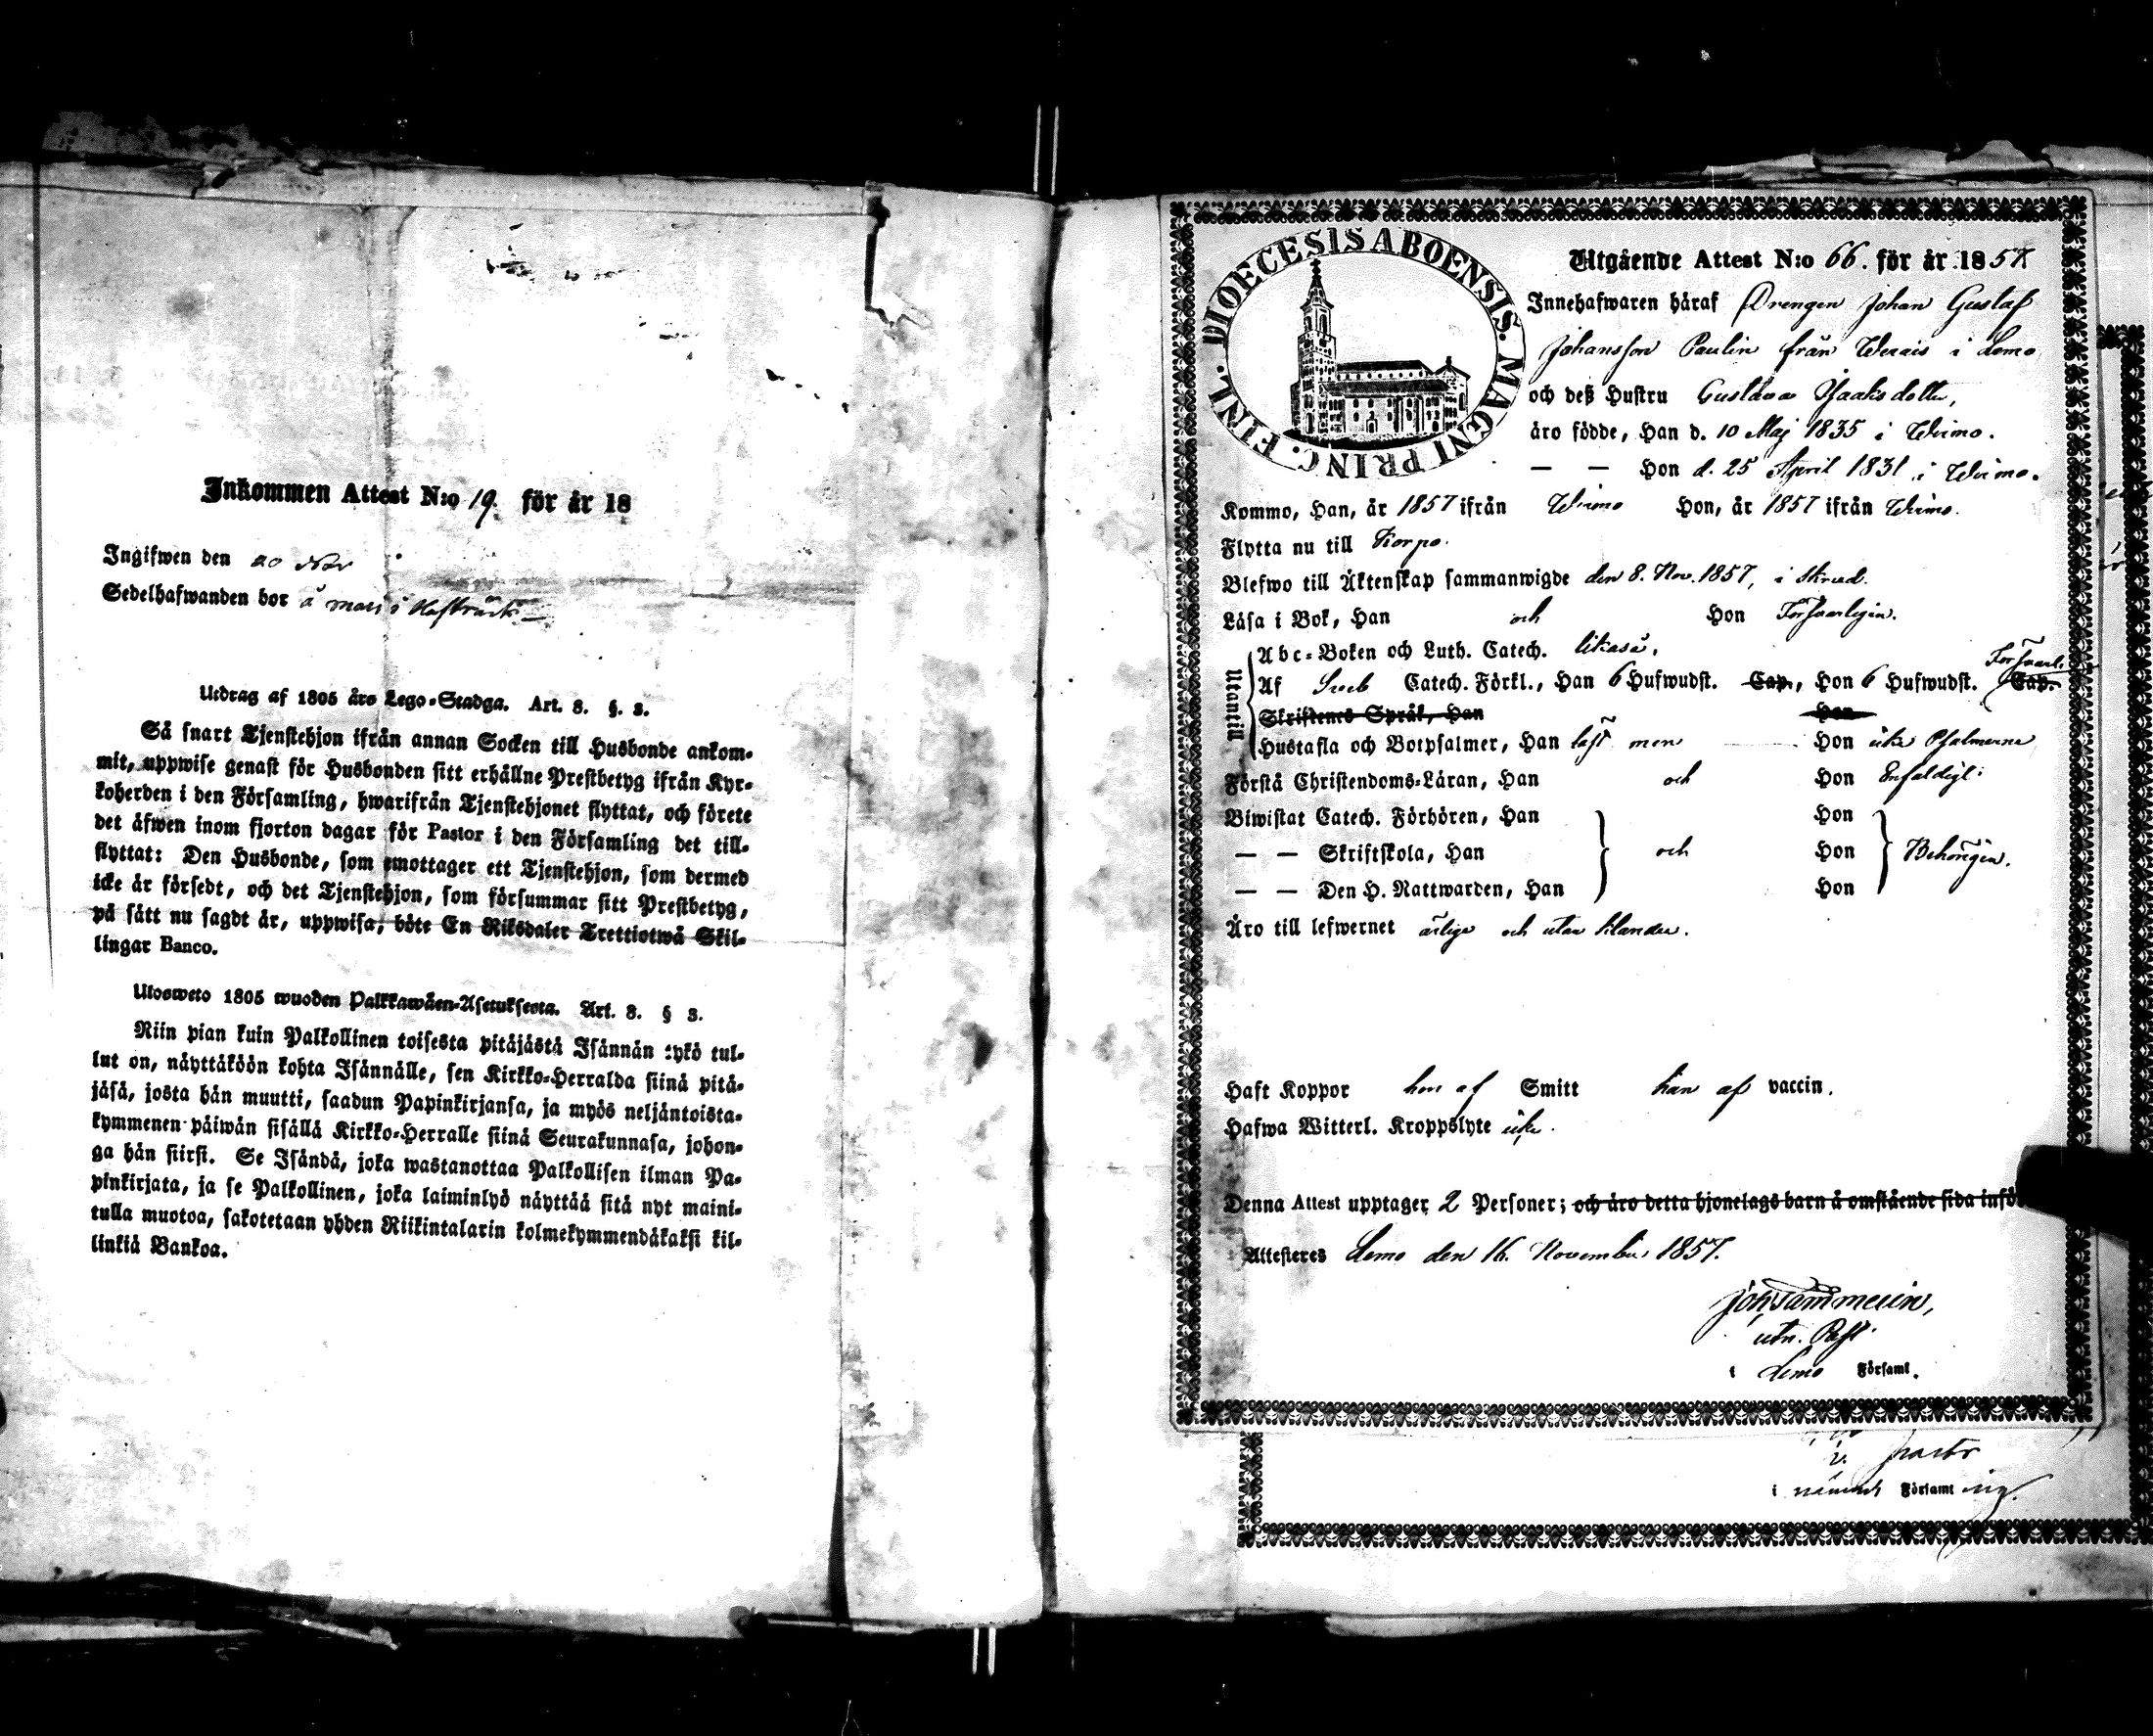 Inkommen Attest N:o 19. för år 18
Ingifwen den 20 Nov
Sedelhafwanden bor å
Utdrag af 1805 års Lego-Stadga. Art. 8. §. 3.
Så snart Tjenstehjon ifrån annan Socken till Husbonde ankom-
mit, uppwise genast för Husbonden sitt erhållne Prestbetyg ifrån Kyr-
koherden i den Församling, hwarifrån Tjenstehjonet flyttat, och förete
det äfwen inom fjorton dagar för Pastor i den Församling det till-
flyttat: Den Husbonde, som emottager ett Tjenstehjon, som dermed
icke är försedt, och det Tjenstehjon, som försummar sitt Prestbetyg,
på sätt nu sagdt är, uppwisa, böte En Riksdaler Trettiotwå Skil-
lingar Banco.
Ulosweto 1805 wuoden Palkkawäen-Asetuksesta. Art. 8. § 3.
Niin pian kuin Palkollinen toisesta pitäjästä Isännän tykö tul-
lut on, näyttäköön kohta Isännälle, sen Kirkko-Herralda siinä pitä-
jäsä, josta hän muutti, saadun Papinkirjansa, ja myös neljäntoista-
kymmenen päiwän sisällä Kirkko-Herralle siinä Seurakunnasa, johon-
ga hän siirsi. Se Isändä, joka wastanottaa Palkollisen ilman Pa-
pinkirjata, ja se Palkollinen, joka laiminlyö näyttää sitä nyt maini-
tulla muotoa, sakotetaan yhden Riikintalarin kolmekymmendäkaksi kil-
linkiä Bankoa.
DIOECESIS ABOENSIS. MAGNI PRINC. FINL.
Utgående Attest N:o 66. för år 1857
Innehafwaren häraf Drengen Johan Gustaf
Johansson Paulin från Werais i Lemo
och deß Hustru Gustava Isaaksdotter,
äro födde, Han d. 10 Maj 1835 i Wirmo.
— — Hon d. 25 April 1831 i Wirmo.
Kommo, Han, år 1857 ifrån Wirmo Hon, år 1857 ifrån Wirmo.
Flytta nu till Korpo.
Blefwo till Äktenskap sammanwigde den 8. Nov. 1857, i Skrud.
Läsa i Bok, Han och Hon Försvarligen.
Utantill
Abc-Boken och Luth. Catech. likaså.
Af Sveb Catech. Förkl., Han 6 Hufwudst. Cap., Hon 6 Hufwudst. Cap. Försvarl.
Skriftenes Språk, Han Hon
Hustafla och Botpsalmer, Han läst men Hon icke Psalmerne
Förstå Christendoms-Läran, Han och Hon Enfaldigt
Biwistat Catech. Förhören, Han Hon
— — Skriftskola, Han och Hon Behörigen.
— — Den H. Nattwarden, Han Hon
Äro till lefwernet ärlige och utan klander.
Haft Koppor hon af Smitt han af vaccin.
Hafwa Witterl. Kroppslyte icke.
Denna Attest upptager 2 Personer; och äro detta hjonelags barn å omstående sida infö
Attesteres Lemo den 16. November 1857.
utn. Past.
i Lemo Församl.
v. pastor
i nämnde Församl ing.